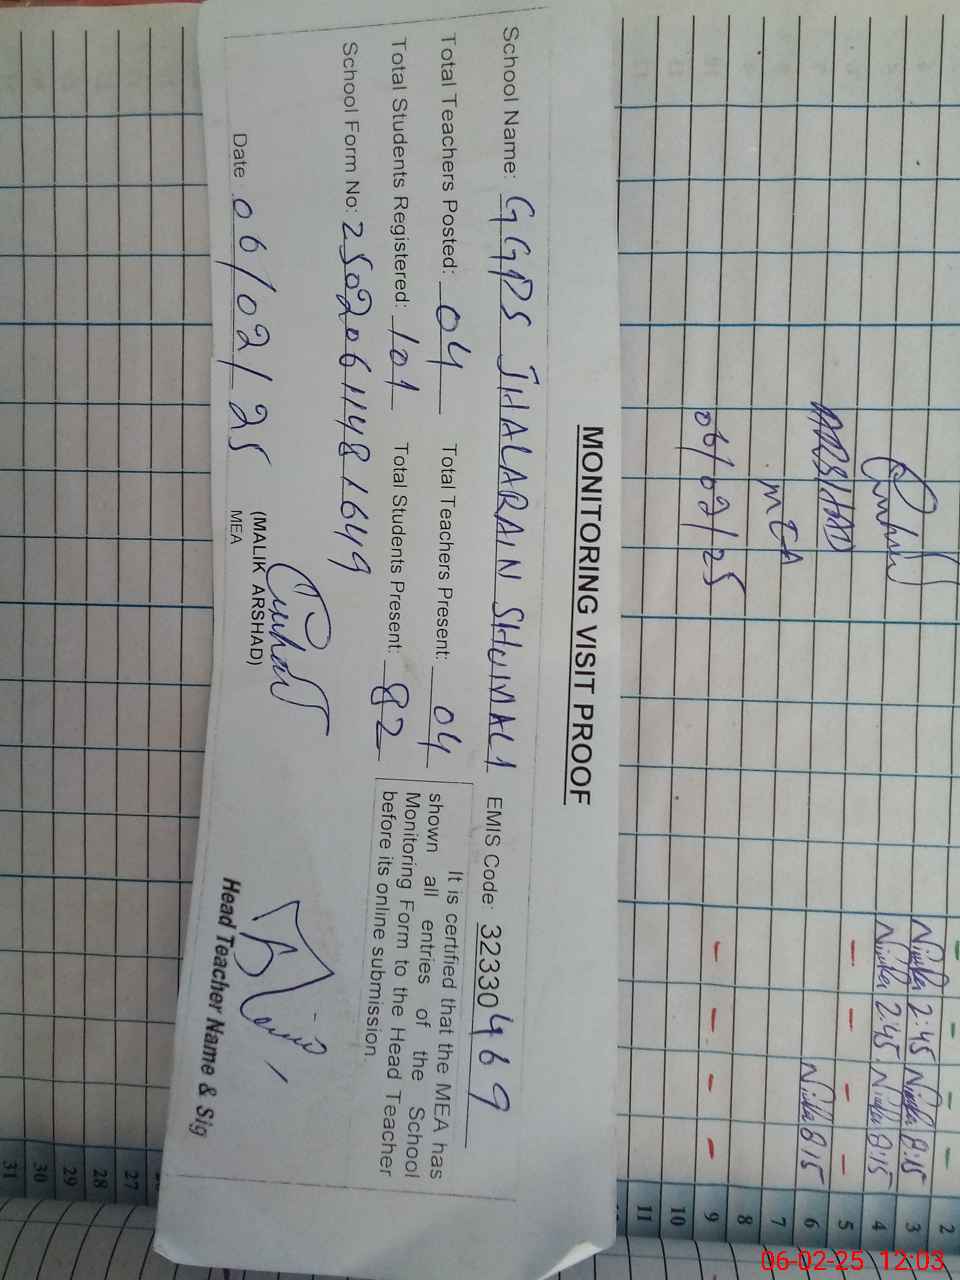 MONITORING VISIT PROOF
School Name: GGPS JHALARAIN SHUMALI EMIS Code: 32330469
Total Teachers Posted: 04 Total Teachers Present: 04
Total Students Registered: 101 Total Students Present: 82
School Form No: 2502061148 1649
It is certified that the MEA has
shown all entries of the School
Monitoring Form to the Head Teacher
before its online submission.
Date: 06/02/25
(MALIK ARSHAD)
MEA
Head Teacher Name & Sig
ARSHAD
MEA
06/02/25
2:45 8:15
2:45 8:15
8:15
2
3
4
5
6
7
8
9
10
11
27
28
29
30
31
06-02-25 12:03